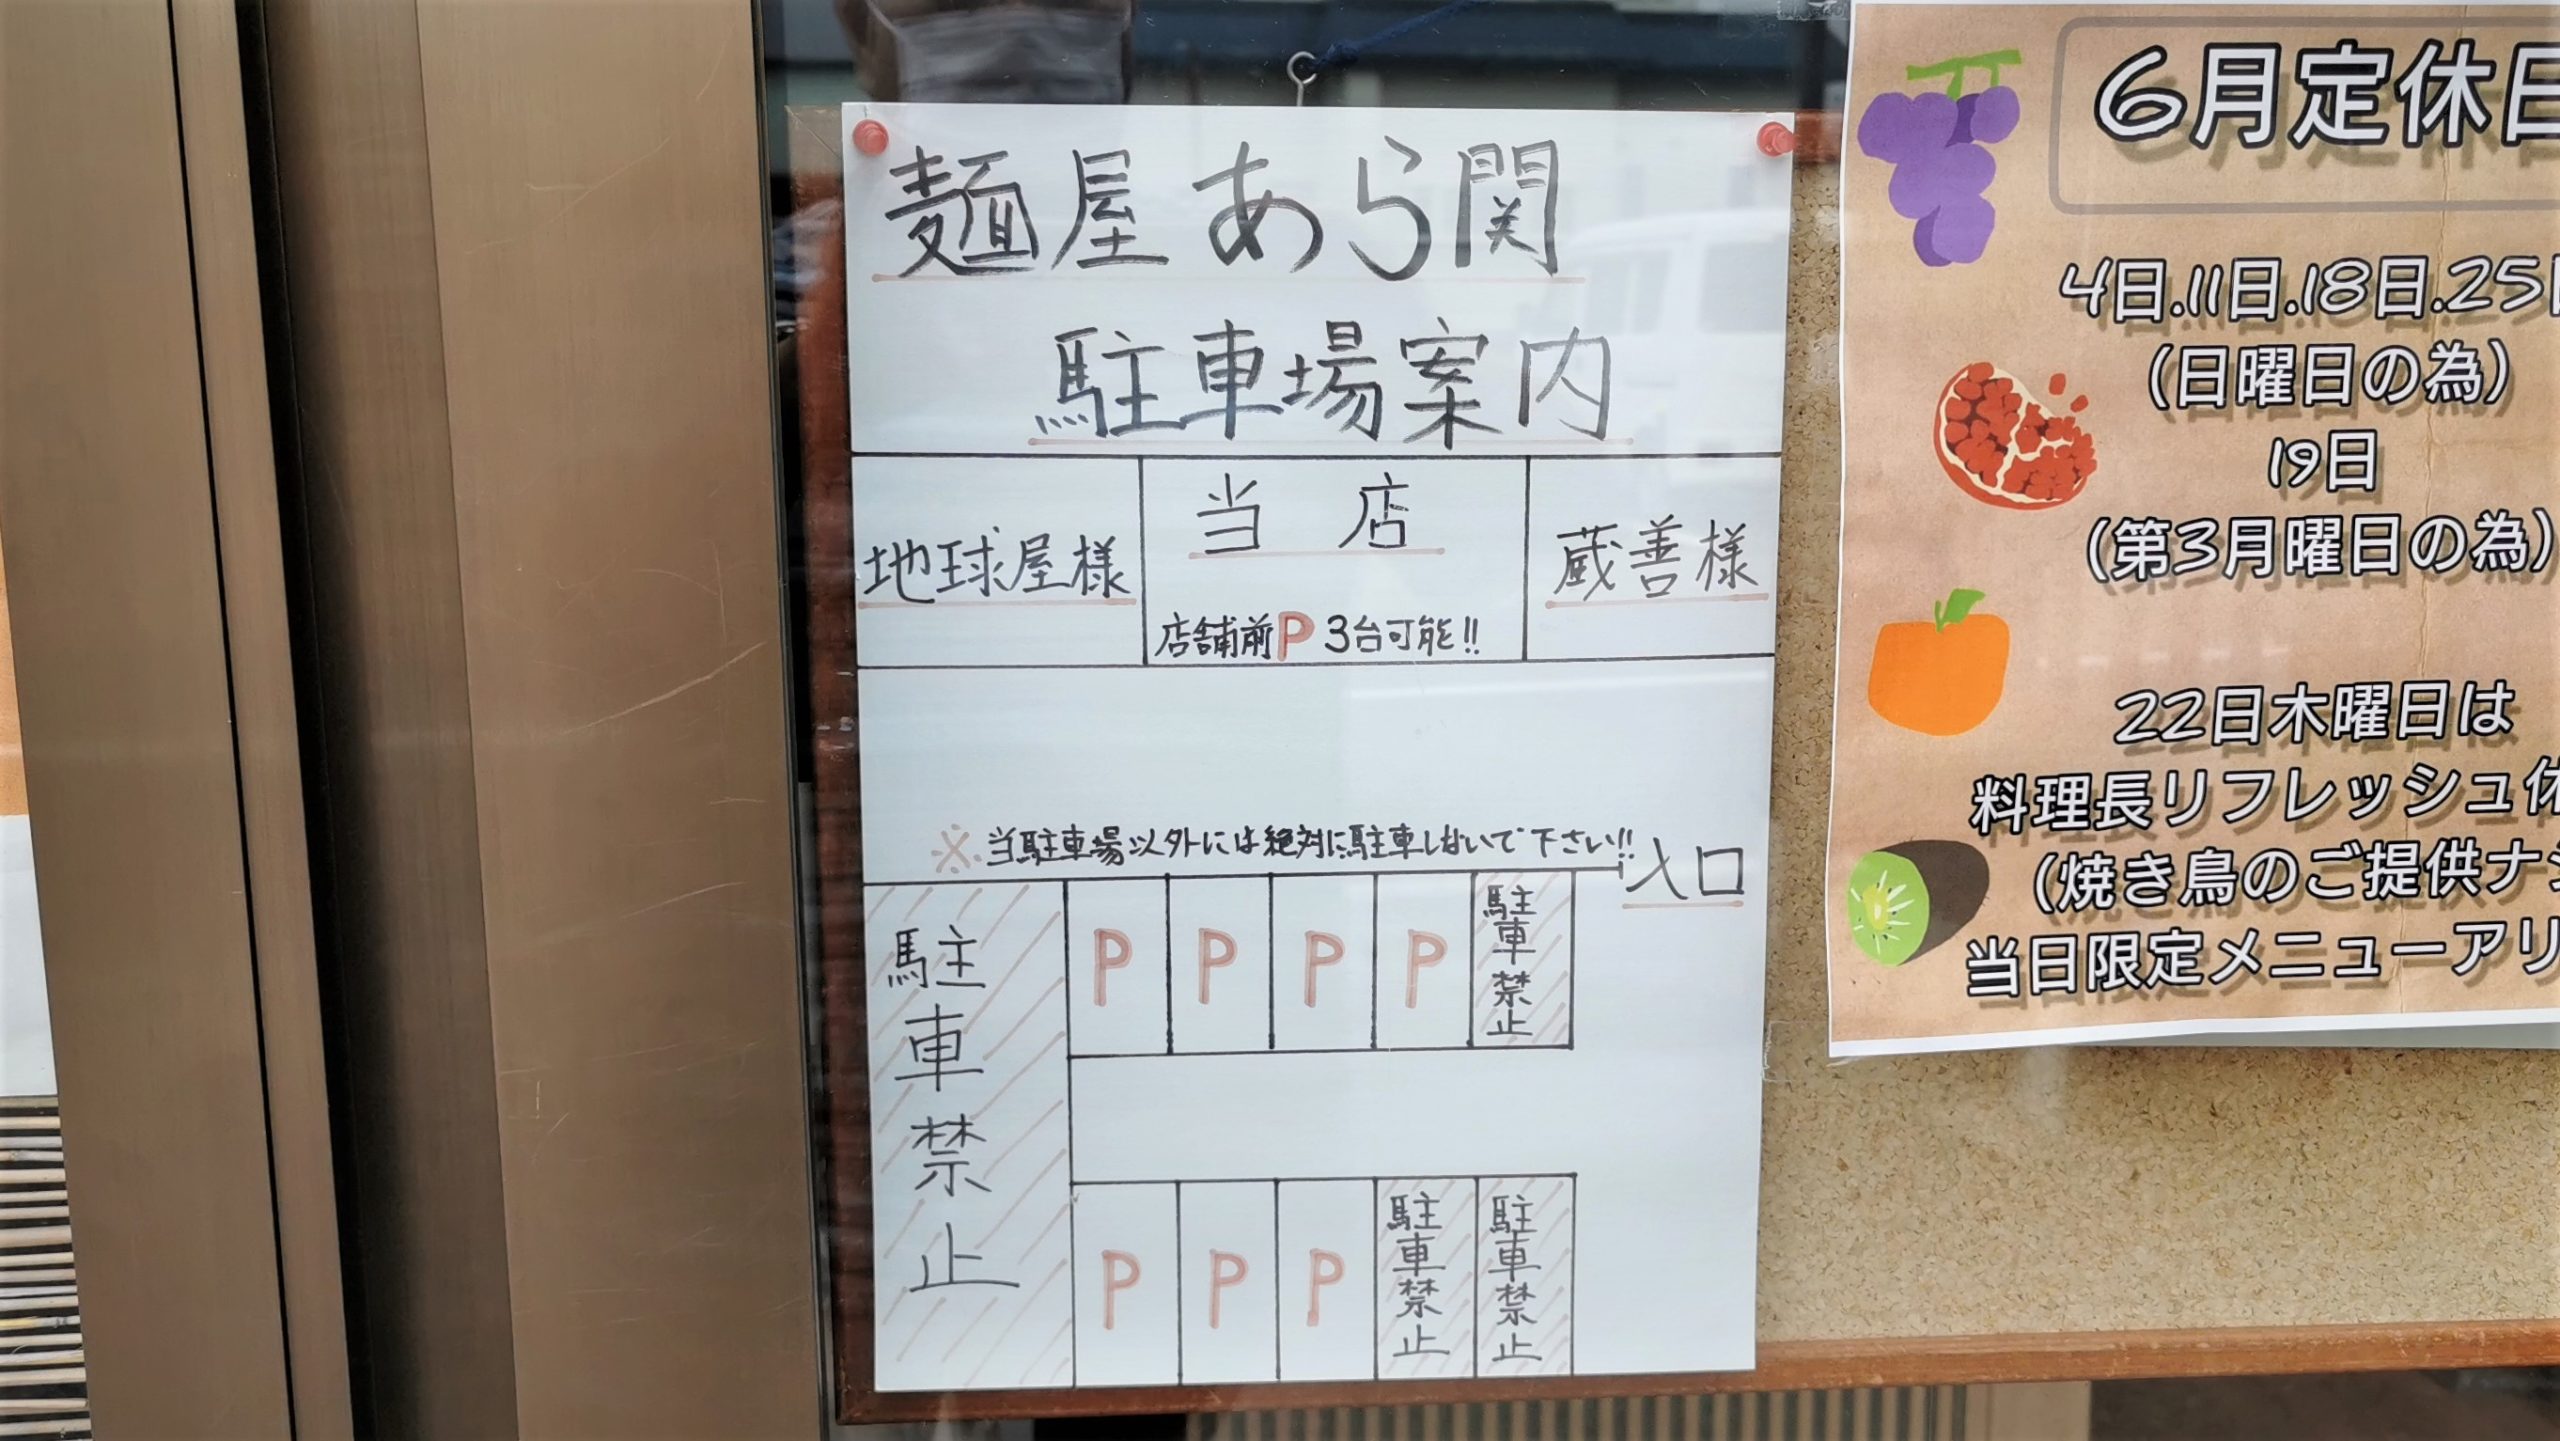 麺屋あら関
駐車場案内
地球屋様
当店
店舗前P 3台可能!!
蔵善様
※当駐車場以外には絶対に駐車しないで下さい!!
入口
駐車禁止
P
P
P
P
駐車禁止
P
P
P
駐車禁止
駐車禁止
6月定休日
4日.11日.18日.25日
(日曜日の為)
19日
(第3月曜日の為)
22日木曜日は
料理長リフレッシュ休
(焼き鳥のご提供ナシ
当日限定メニューアリ